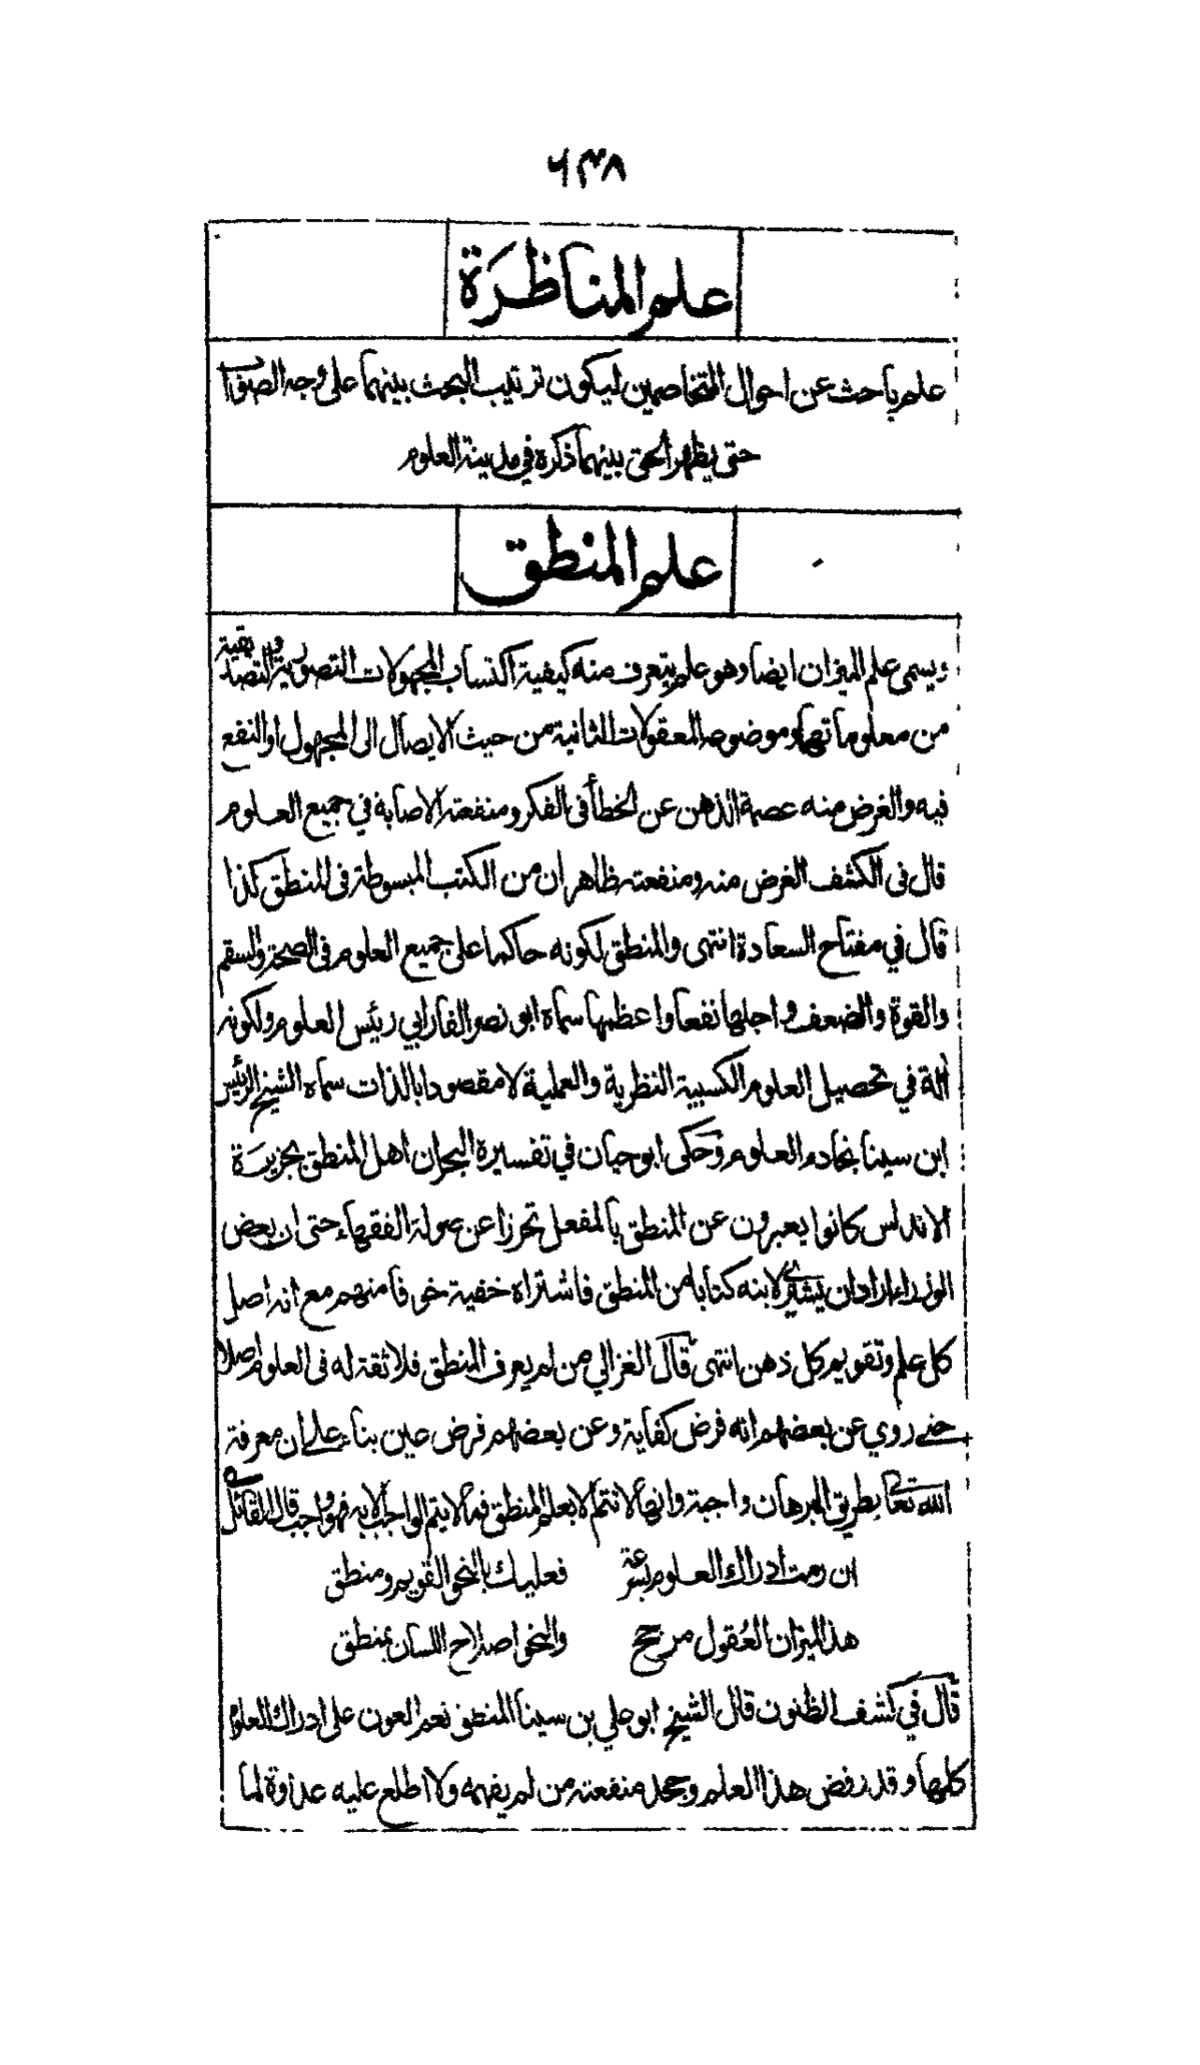 ٦٣٨
علم المناظرة
علم باحث عن احوال المتخاصمين ليكون ترتيب البحث بينهما على وجه الصواب
حتى يظهر الحق بينهما ذكره في مدينة العلوم
علم المنطق
ويسمى علم الميزان ايضا وهو علم يتعرف منه كيفية اكتساب المجهولات التصورية والتصديقية
من معلوماتها وموضوعه المعقولات الثانية من حيث الايصال الى المجهول او النفع
فيه والغرض منه عصمة الذهن عن الخطأ فى الفكر ومنفعته الاصابة في جميع العلوم
قال فى الكشف الغرض منه ومنفعته ظاهران من الكتب المبسوطة فى المنطق كذا
قال في مفتاح السعادة انتهى والمنطق لكونه حاكما على جميع العلوم فى الصحة والسقم
والقوة والضعف واجلها نفعا واعظمها سماه ابو نصر الفارابي رئيس العلوم ولكونه
آلة في تحصيل العلوم الكسبية النظرية والعملية لا مقصودا بالذات سماه الشيخ الرئيس
ابن سينا بخادم العلوم وحكى ابو حيان في تفسيره البحر ان اهل المنطق بجزيرة
الاندلس كانوا يعبرون عن المنطق بالمفعل تحرزا عن صولة الفقهاء حتى ان بعض
الوزراء اراد ان يشتري لابنه كتابا من المنطق فاشتراه خفية خوفا منهم مع انه اصل
كل علم وتقويم كل ذهن انتهى قال الغزالي من لم يعرف المنطق فلا ثقة له فى العلوم اصلا
حتى روي عن بعضهم انه فرض كفاية وعن بعضهم فرض عين بناء على ان معرفة
الله تعالى بطريق البرهان واجبة وانها لا تتم الا بعلم المنطق فما لا يتم الواجب الا به فهو واجب قال القائل
ان رمت ادراك العلوم بسرعة فعليك بالنحو القويم ومنطق
هذا لميزان العقول مرجح والنحو اصلاح اللسان بمنطق
قال في كشف الظنون قال الشيخ ابو علي بن سينا المنطق نعم العون على ادراك العلوم
كلها وقد رفض هذا العلم وجحد منفعته من لم يفهمه ولا اطلع عليه عداوة لما